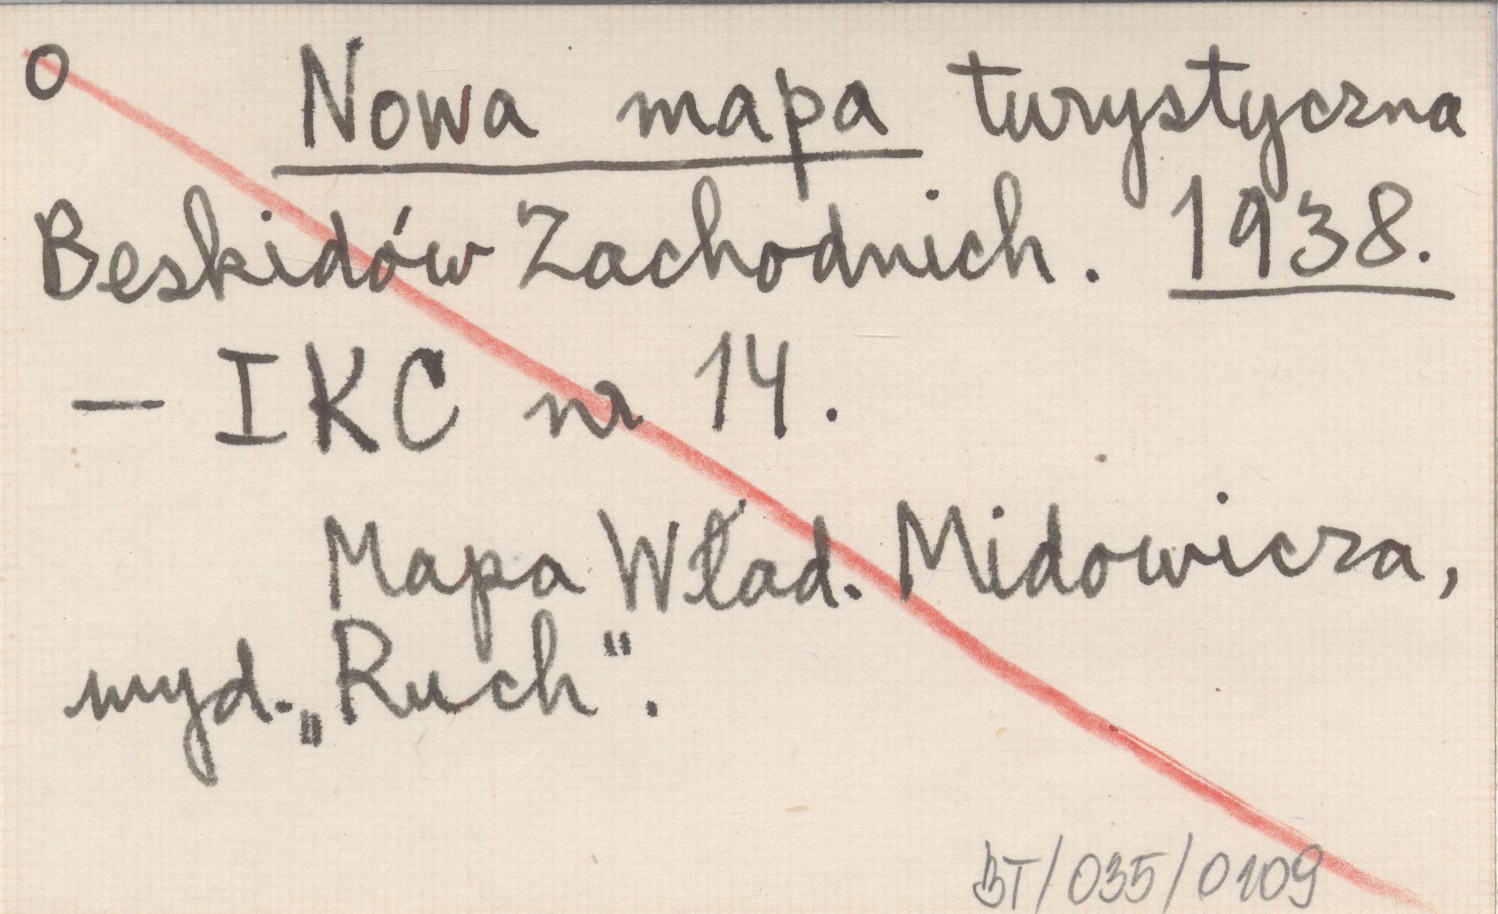 O Nowa mapa turystyczna
Beskidów Zachodnich. 1938.
— IKC nr 14.
Mapa Wład. Midowicza,
wyd. „Ruch".
BT/035/0109